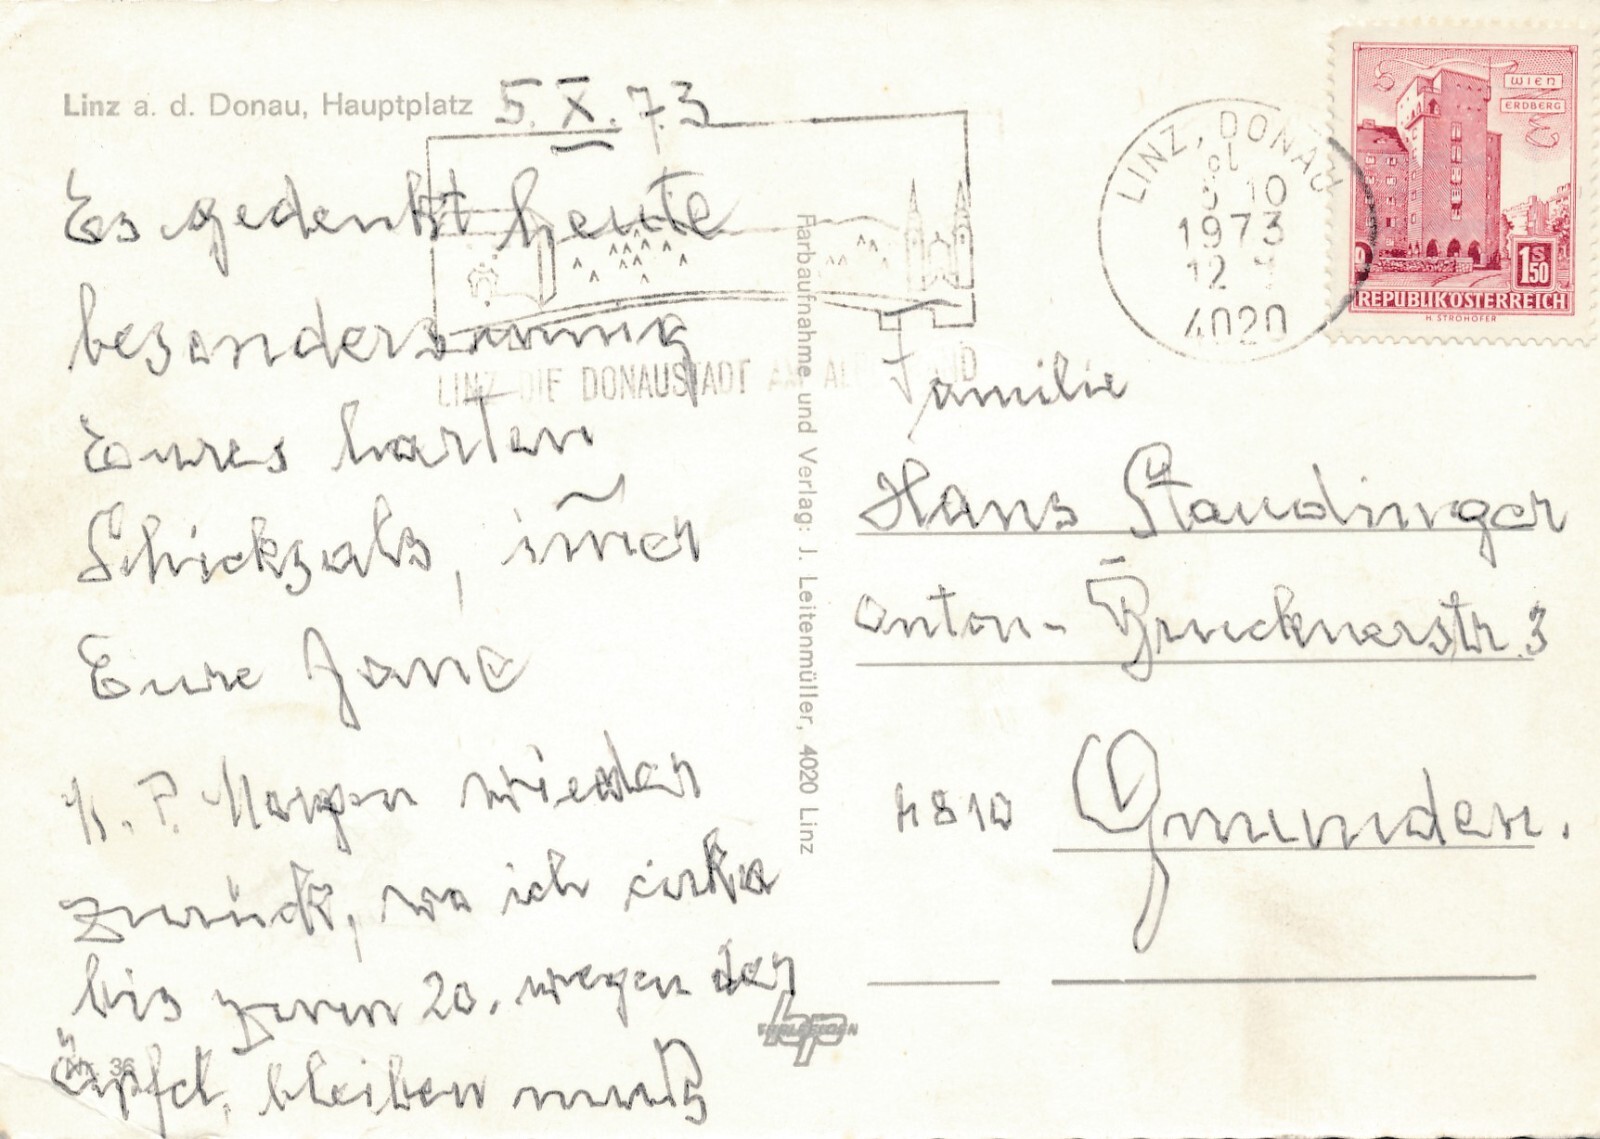 Linz a. d. Donau, Hauptplatz
5. X. 73
Es gedenkt heute
besonders innig
Eures harten
Schicksals, im̃er
Eure
N. P. Morgen wieder
zurück, wo ich cirka
bis zum 20. wegen der
Äpfel, bleiben muß
Nr. 36
Farbaufnahme und Verlag: J. Leitenmüller, 4020 Linz
LINZ, DONAU
10
1973
12
4020
LINZ DIE DONAUSTADT AM
WIEN
ERDBERG
1 S 50
REPUBLIK ÖSTERREICH
H. STROHOFER
Familie
Hans Staudinger
Anton-Brucknerstr. 3
4810 Gmunden.